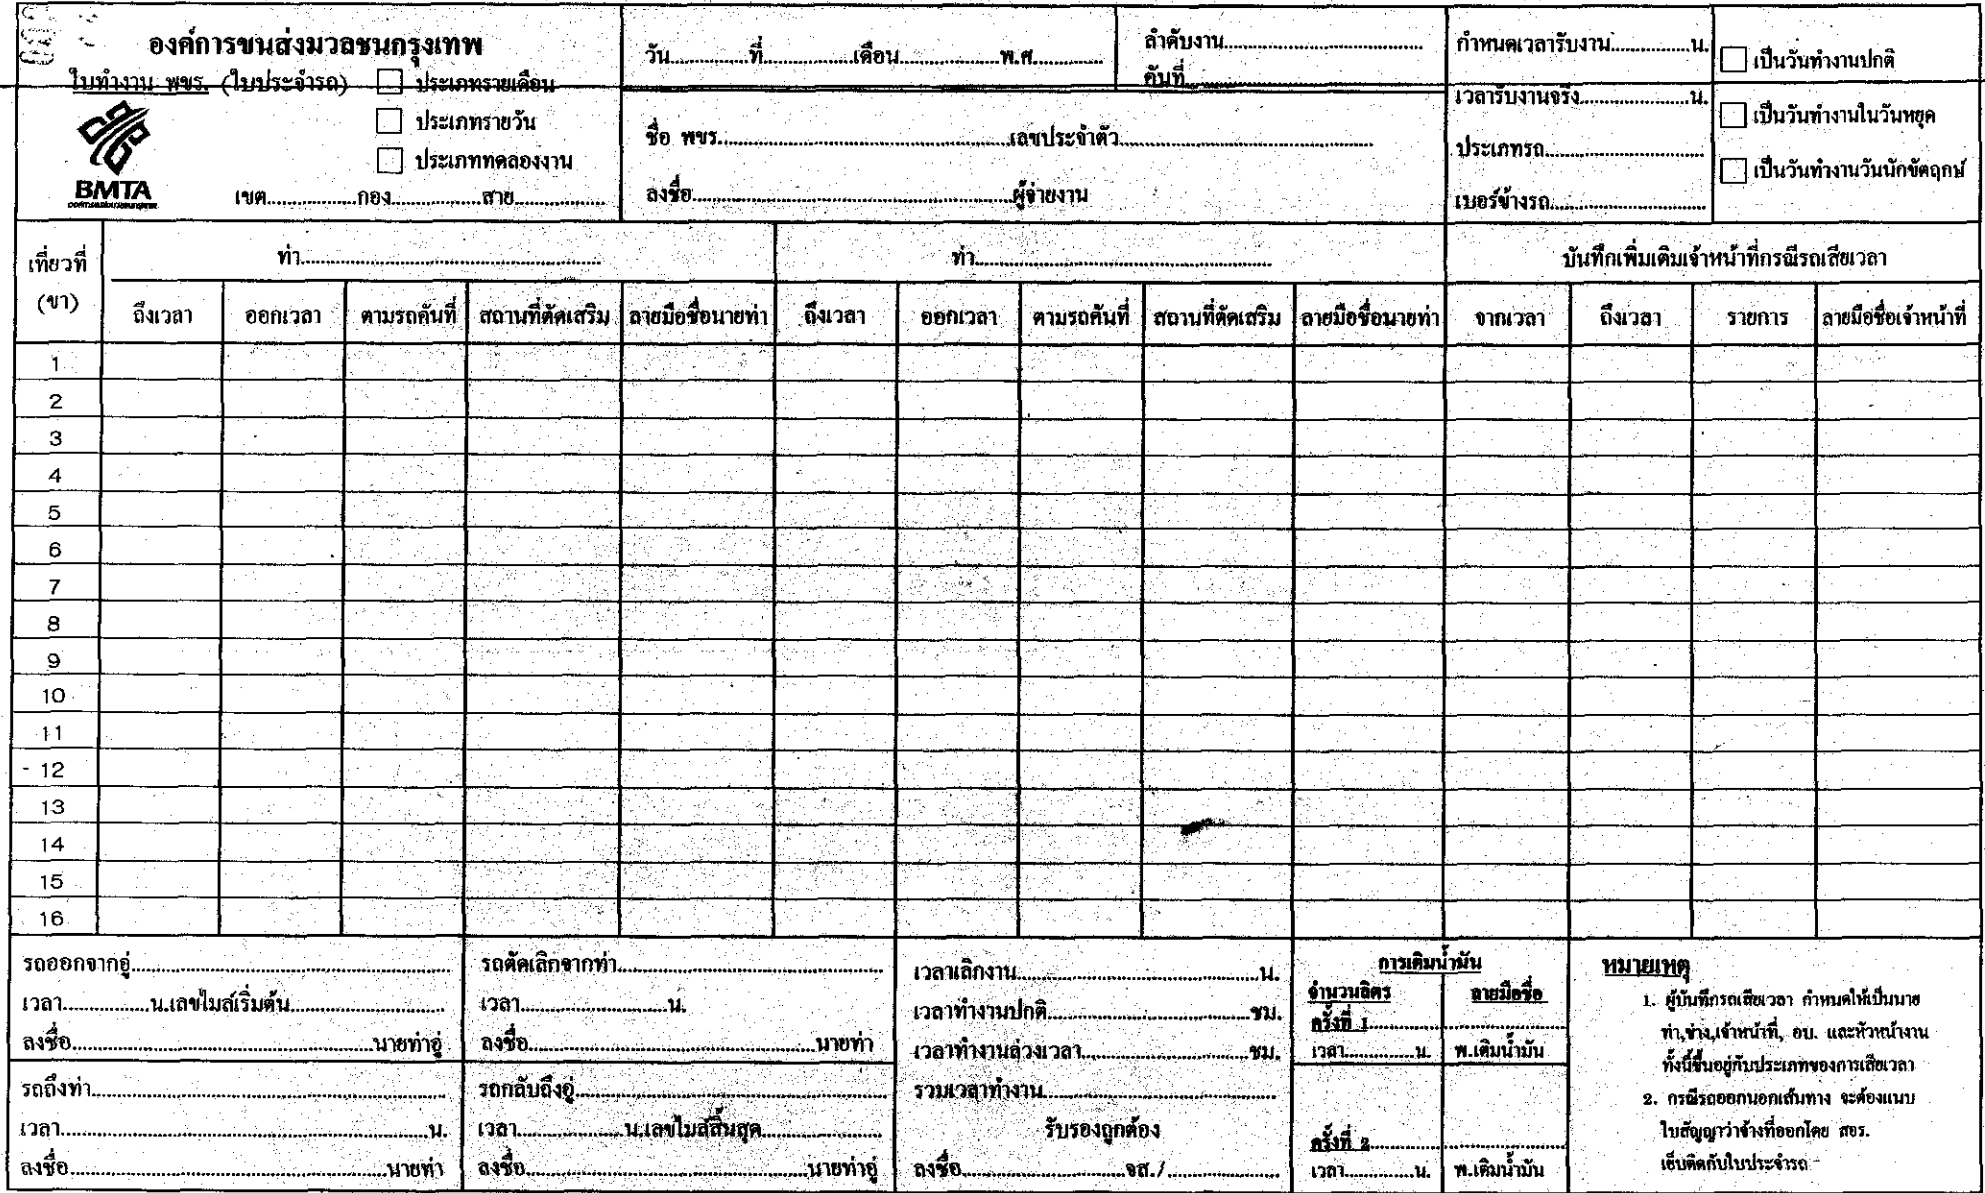 องค์การขนส่งมวลชนกรุงเทพ
ใบทำงาน พขร. (ใบประจำรถ)
ประเภทรายเดือน
ประเภทรายวัน
ประเภททดลองงาน
BMTA
เขต..................กอง..................สาย..................
วัน..............ที่..................เดือน....................พ.ศ..............
ชื่อ พขร............................................................เลขประจำตัว....................................................
ลงชื่อ.................................................................ผู้จ่ายงาน
ลำดับงาน........................................
คันที่..............................
กำหนดเวลารับงาน................น.
เวลารับงานจริง......................น.
ประเภทรถ................................
เบอร์ข้างรถ...............................
เป็นวันทำงานปกติ
เป็นวันทำงานในวันหยุด
เป็นวันทำงานวันนักขัตฤกษ์
เที่ยวที่ (ขา)
ท่า............................................................
ท่า............................................................
บันทึกเพิ่มเติมเจ้าหน้าที่กรณีรถเสียเวลา
ถึงเวลา ออกเวลา ตามรถคันที่ สถานที่ตัดเสริม ลายมือชื่อนายท่า ถึงเวลา ออกเวลา ตามรถคันที่ สถานที่ตัดเสริม ลายมือชื่อนายท่า จากเวลา ถึงเวลา รายการ ลายมือชื่อเจ้าหน้าที่
1
2
3
4
5
6
7
8
9
10
11
12
13
14
15
16
รถออกจากอู่................................................................
เวลา................น.เลขไมล์เริ่มต้น................................
ลงชื่อ............................................................นายท่าอู่
รถถึงท่า......................................................................
เวลา.........................................................................น.
ลงชื่อ..............................................................นายท่า
รถตัดเลิกจากท่า.....................................................
เวลา..................................น.
ลงชื่อ.........................................................นายท่า
รถกลับถึงอู่............................................................
เวลา....................น.เลขไมล์สิ้นสุด........................
ลงชื่อ........................................................นายท่าอู่
เวลาเลิกงาน................................................น.
เวลาทำงานปกติ........................................ชม.
เวลาทำงานล่วงเวลา.................................ชม.
รวมเวลาทำงาน...............................................
รับรองถูกต้อง
ลงชื่อ.................................จส./......................
การเติมน้ำมัน
จำนวนลิตร ลายมือชื่อ
ครั้งที่ 1....................................
เวลา..............น. พ.เติมน้ำมัน
ครั้งที่ 2....................................
เวลา..............น. พ.เติมน้ำมัน
หมายเหตุ
1. ผู้บันทึกรถเสียเวลา กำหนดให้เป็นนาย
ท่า,ช่าง,เจ้าหน้าที่, อบ. และหัวหน้างาน
ทั้งนี้ขึ้นอยู่กับประเภทของการเสียเวลา
2. กรณีรถออกนอกเส้นทาง จะต้องแนบ
ใบสัญญาว่าจ้างที่ออกโดย สอร.
เย็บติดกับใบประจำรถ